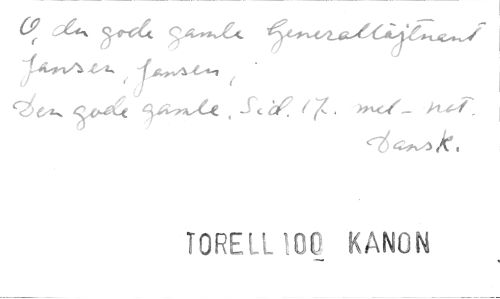 O, du gode gamle Generalløjtnant
Jansen, Jansen,
Den gode gamle. Sid. 17. mel-not.
Dansk.
TORELL 100 KANON